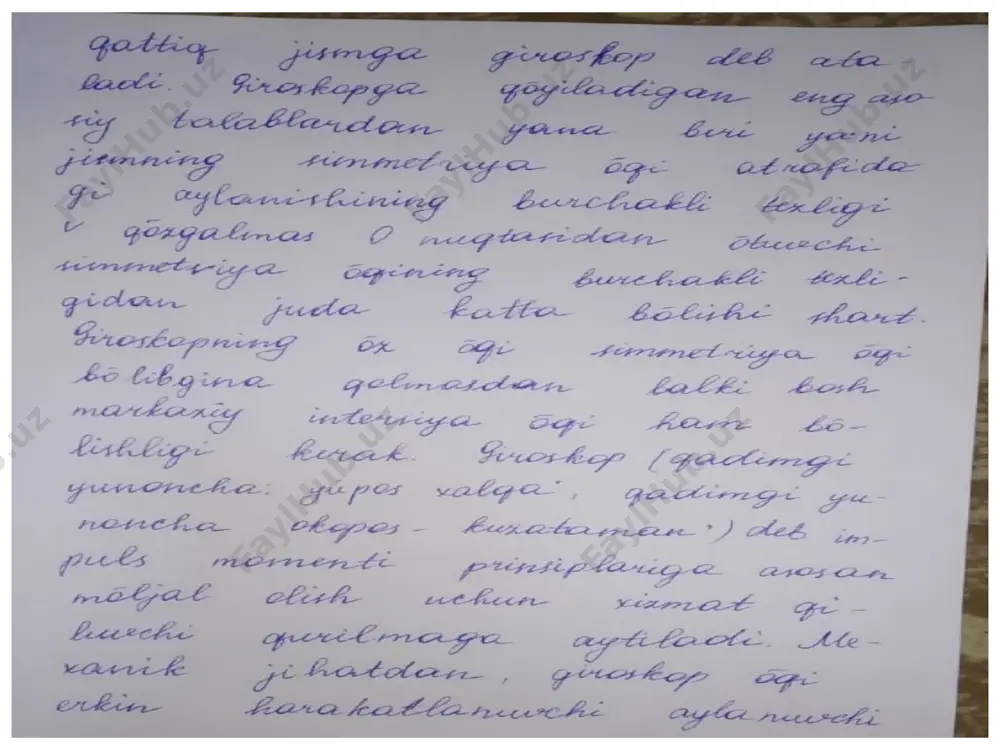 qattiq jismga giroskop deb ata-
ladi. Giroskopga qōyiladigan eng aso
siy talablardan yana biri ya'ni
jismning simmetriya ōqi atrofida
gi aylanishining burchakli tezligi
qōzgalmas O nuqtasidan ōtuvchi
simmetriya ōqining burchakli tezli-
gidan juda katta bōlishi shart.
Giroskopning ōz ōqi simmetriya ōqi
bōlibgina qolmasdan balki bosh
markaziy intersiya ōqi ham bō-
lishligi kerak. Giroskop (qadimgi
yunoncha: yupos xalqa", qadimgi yu-
noncha okopos - kuzataman") deb im-
puls momenti prinsiplariga asosan
mōljal olish uchun xizmat qi-
luvchi qurilmaga aytiladi. Me-
xanik jihatdan, giroskop ōqi
erkin harakatlanuvchi aylanuvchi
FaylHub.uz